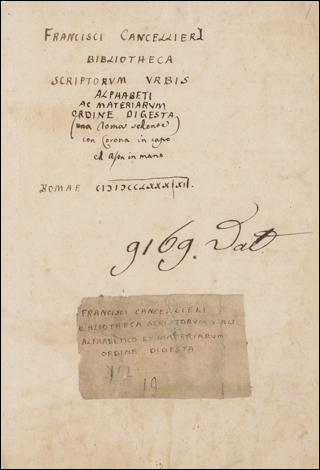 FRANCISCI CANCELLIERI
BIBLIOTHECA
SCRIPTORVM VRBIS
ALPHABETI
AC MATERIARVM
ORDINE DIGESTA
(una Roma sedente)
con Corona in capo
ed asta in mano
ROMAE
9169. Dat
FRANCISCI CANCELLIERI
BIBLIOTHECA SCRIPTORVM
ALPHABETICO ET MATERIARVM
ORDINE DIGESTA
19